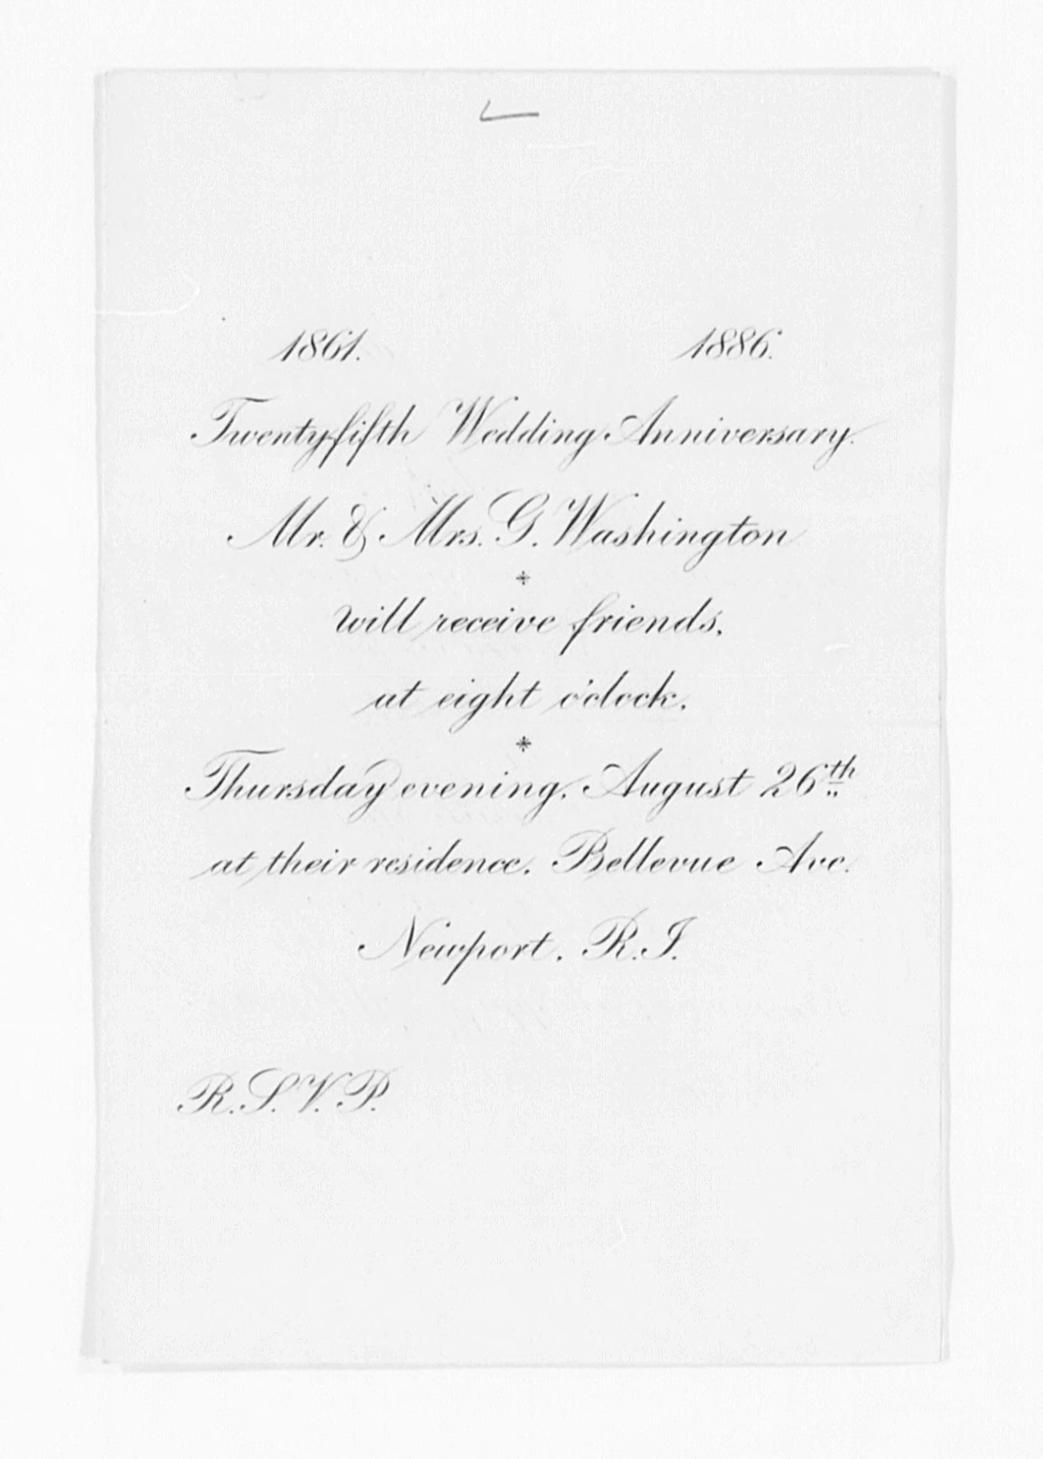 1861. 1886.
Twenty-fifth Wedding Anniversary.
Mr. & Mrs. G. Washington
will receive friends,
at eight o'clock.
Thursday evening, August 26th
at their residence, Bellevue Ave.
Newport, R.I.
R.S.V.P.